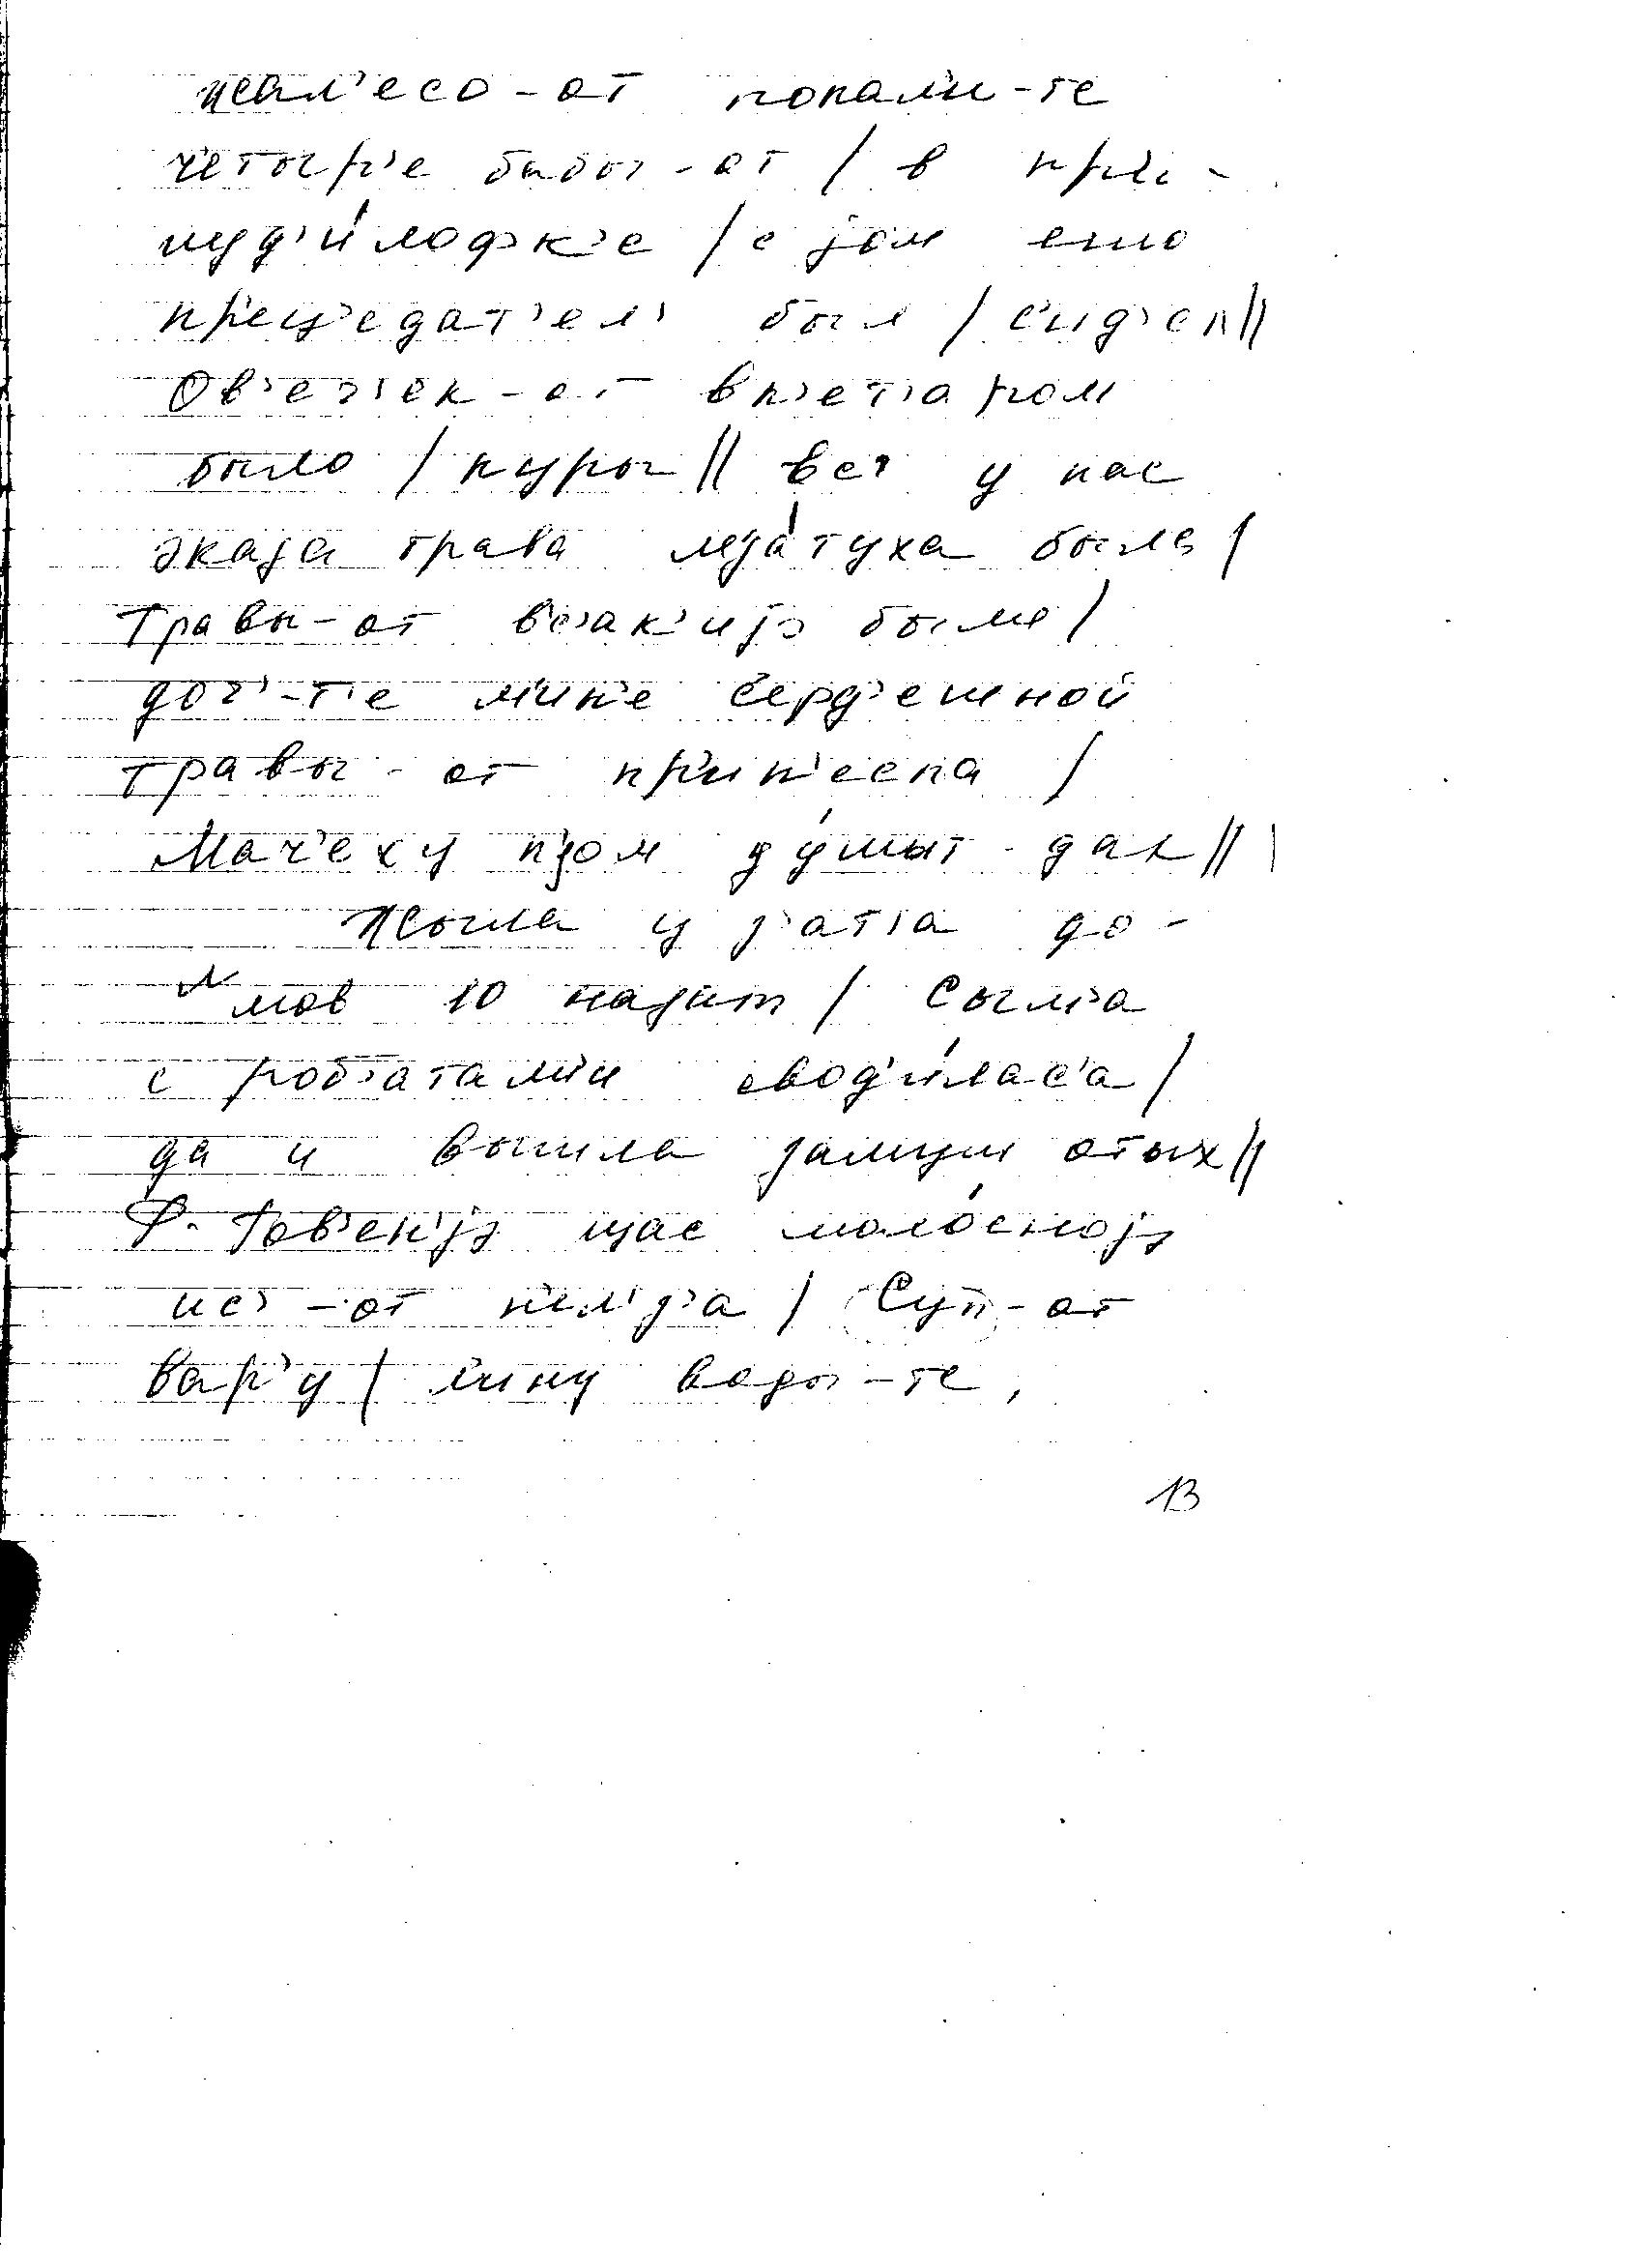 кол'есо-от попал'и-те
четыр'е бабы-от / в пр'и-
нуд'и́лофк'е / с jом ешо
пр'ец'едат'ел' был / с'ид'ел //
Ов'еч'ек-от
было / куры // вот у нас
экаjа трава мjа́туха была /
Травы-от вс'ак'иjэ были /
доч'-т'е мин'е с'ерд'ешной
травы-от пр'ин'есла /
Мач'еху пjом ду́шыт-дак //
Жыла у з'ат'а до-
мов 10 назат /
с роб'атам'и вод'и́лас'а /
да и вышла замуш отых //
Ф. Гов'енjэ щас моло́сноjэ
ис'-от н'ил'з'а / Суп-от
вар'у / л'ину воды-те,
13